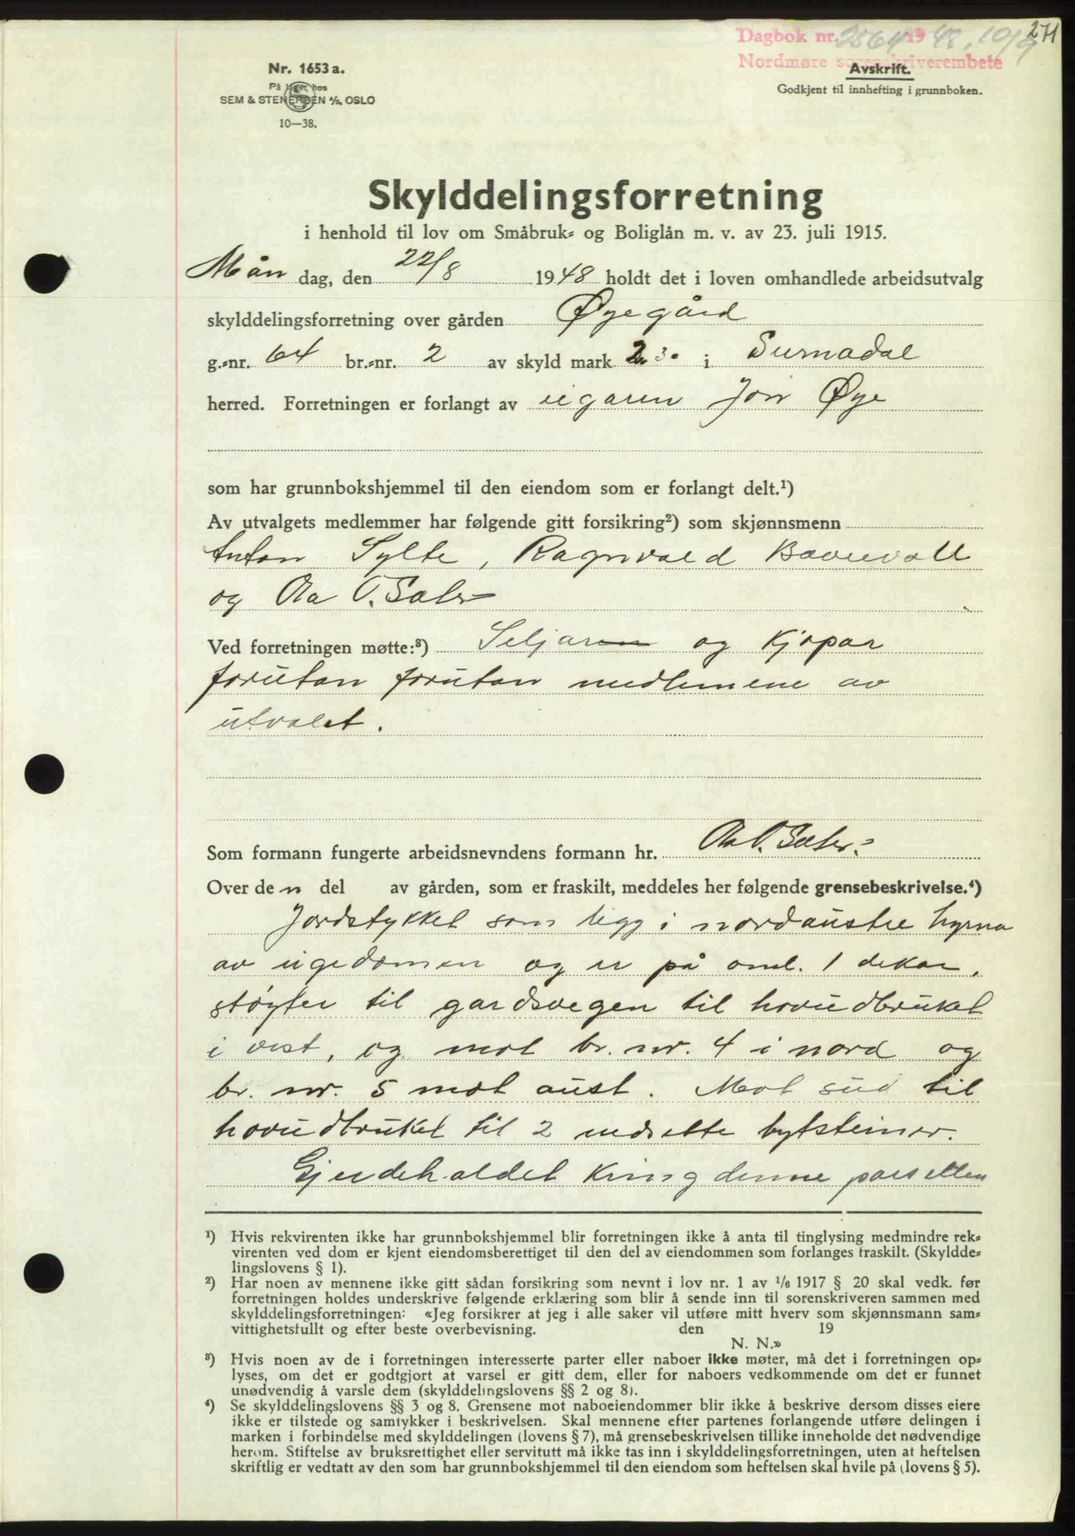 Dagbok nr. 2564 1948. 10/9
271
Nordmøre sorenskriverembete
Avskrift.
Godkjent til innhefting i grunnboken.
Nr. 1653 a.
På lager hos
SEM & STENERSEN A/S, OSLO
10—38.
Skylddelingsforretning
i henhold til lov om Småbruk- og Boliglån m. v. av 23. juli 1915.
Mån dag, den 22/8 1948 holdt det i loven omhandlede arbeidsutvalg
skylddelingsforretning over gården Øyegård
g.-nr. 64 br.-nr. 2 av skyld mark 2.30 i Surnadal
herred. Forretningen er forlangt av eigaren Jon Øye
som har grunnbokshjemmel til den eiendom som er forlangt delt.¹)
Av utvalgets medlemmer har følgende gitt forsikring²) som skjønnsmenn
Anton Sylte, Ragnvald Bævevoll
og Ola O. Sæter
Ved forretningen møtte:³) Seljaren og kjøpar
forutan forutan medlemene av
utvalet.
Som formann fungerte arbeidsnevndens formann hr. Ola O. Sæter.
Over den del av gården, som er fraskilt, meddeles her følgende grensebeskrivelse.⁴)
Jordstykket som ligg i nordaustre hyrna
av eigedomen og er på oml. 1 dekar,
støyter til gardsvegen til hovudbruket
i vest, og mot br. nr. 4 i nord og
br. nr. 5 mot aust. Mot sud til
hovudbruket til 2 nedsette bytsteinar.
Gjerdehaldet kring denne parsellen
¹) Hvis rekvirenten ikke har grunnbokshjemmel blir forretningen ikke å anta til tinglysing medmindre rek-
virenten ved dom er kjent eiendomsberettiget til den del av eiendommen som forlanges fraskilt. (Skyldde-
lingslovens § 1).
²) Har noen av mennene ikke gitt sådan forsikring som nevnt i lov nr. 1 av 1/6 1917 § 20 skal vedk. før
forretningen holdes underskrive følgende erklæring som blir å sende inn til sorenskriveren sammen med
skylddelingsforretningen: «Jeg forsikrer at jeg i alle saker vil utføre mitt hverv som skjønnsmann sam-
vittighetsfullt og efter beste overbevisning. den 19
N. N.»
³) Hvis noen av de i forretningen interesserte parter eller naboer ikke møter, må det i forretningen op-
lyses, om det er godtgjort at varsel er gitt dem, eller for naboers vedkommende om det er funnet
unødvendig å varsle dem (skylddelingslovens §§ 2 og 8).
⁴) Se skylddelingslovens §§ 3 og 8. Grensene mot naboeiendommer blir ikke å beskrive dersom disses eiere
ikke er tilstede og samtykker i beskrivelsen. Skal mennene efter partenes forlangende utføre delingen i
marken i forbindelse med skylddelingen (lovens § 7), må grensebeskrivelsen tillike inneholde det nødvendige
herom. Stiftelse av bruksrettighet eller servitutt må ikke tas inn i skylddelingsforretningen, uten at heftelsen
skriftlig er vedtatt av den som har grunnbokshjemmel til den eiendom som heftelsen skal hvile på (lovens § 5).